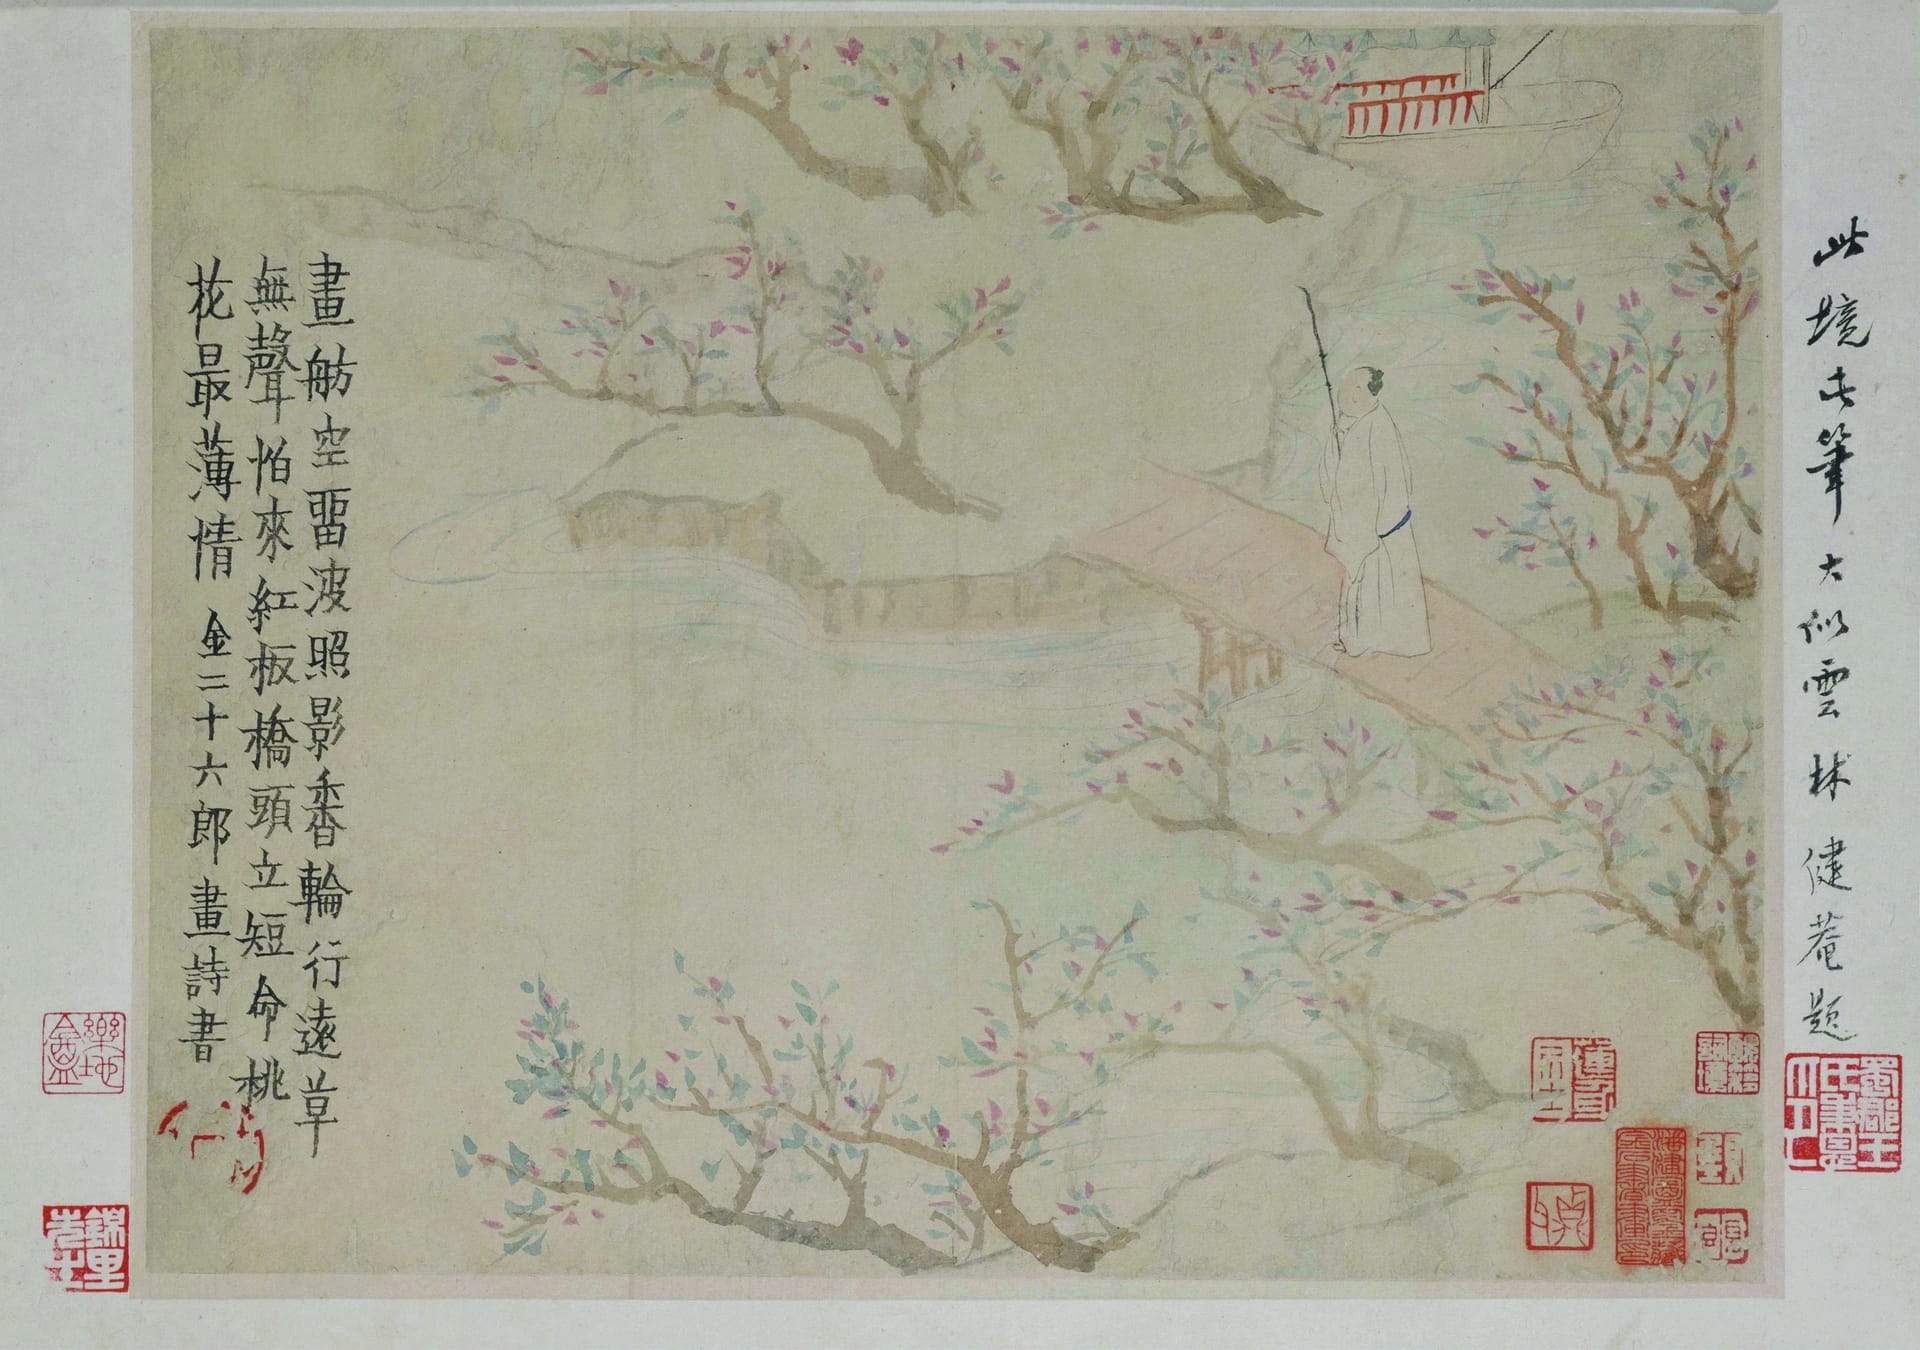 此境此筆大似雲林健菴題
畫舫空畱波照影香輪行遠草
無聲怕來紅板橋頭立短命桃
花最薄情 金二十六郎畫詩書
樂地盦
錦里先生